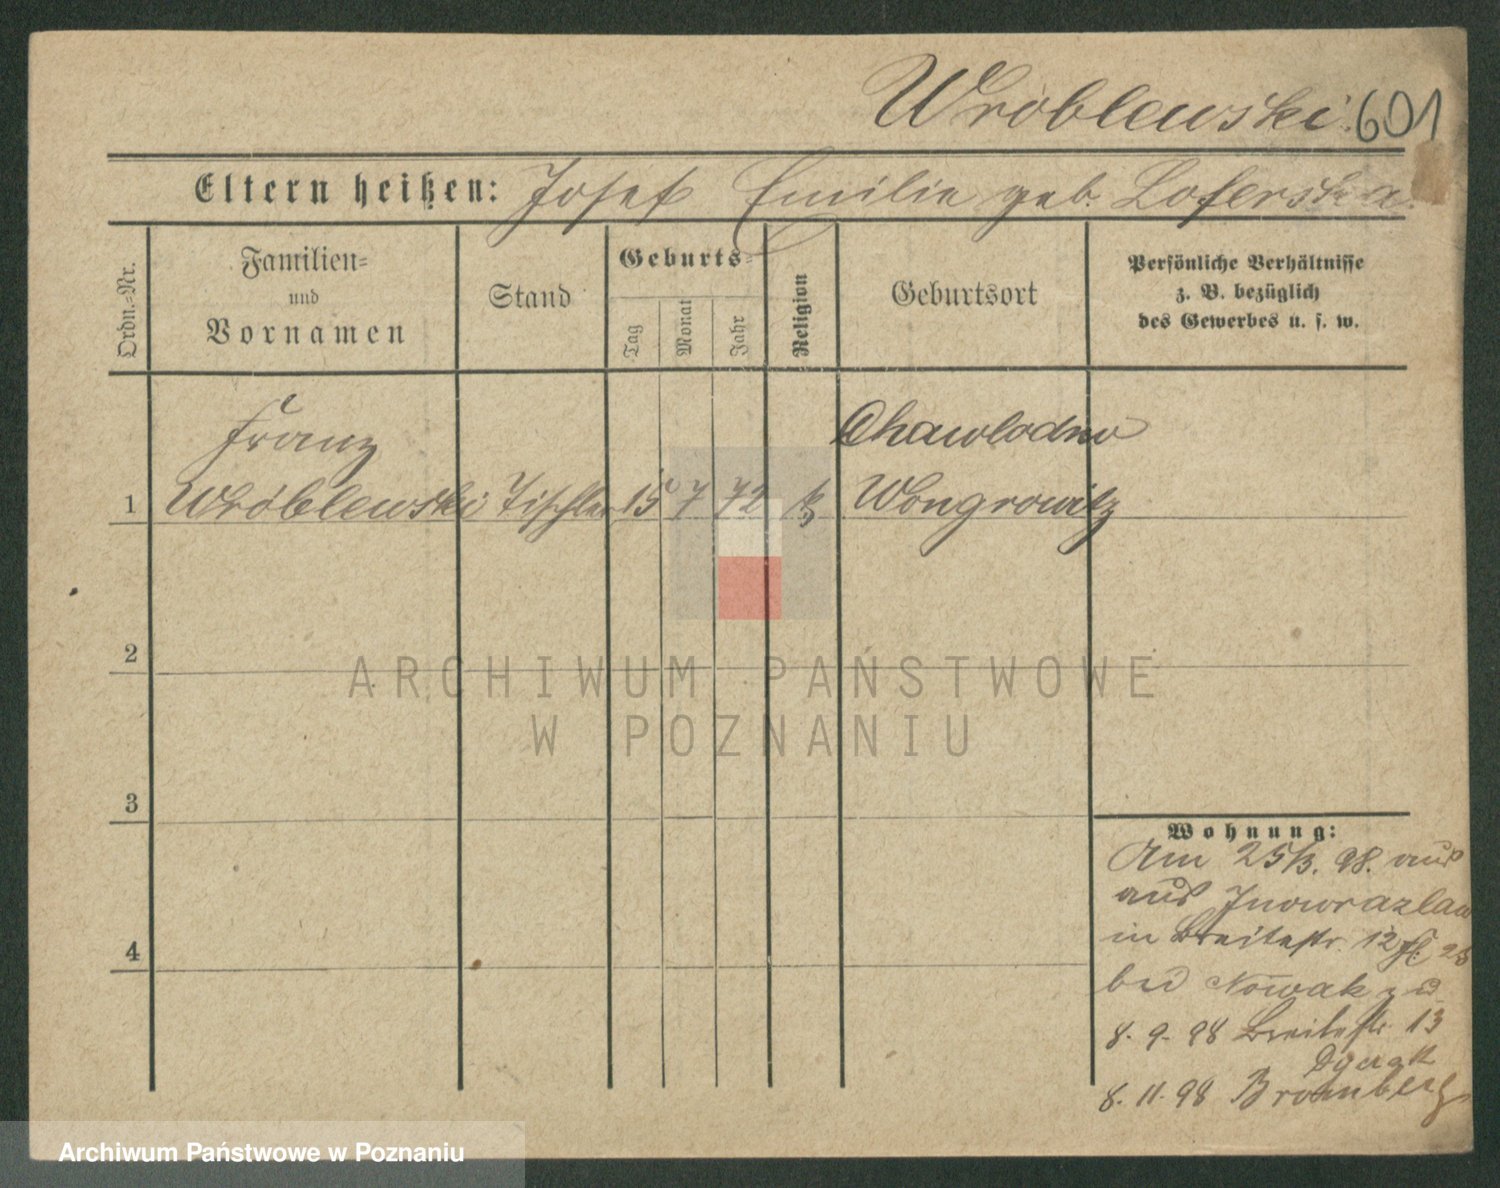 Wróblewski. 601
Eltern heißen: Josef Emilie geb. Loferska.
Ordn.=Nr.
Familien=
und
Vornamen
Stand
Geburts=
Tag
Monat
Jahr
Religion
Geburtsort
Persönliche Verhältnisse
z. B. bezüglich
des Gewerbes u. s. w.
Franz Chawlodno
1 Wróblewski Tischler 15 7 72 k Wongrowitz
2
3
4
Wohnung:
Am 25/3. 98.
aus Inowrazlaw
in Breitestr. 12
bei Nowak
8. 9. 98 Breitestr. 13
8. 11. 98 Bromberg
ARCHIWUM PAŃSTWOWE
W POZNANIU
Archiwum Państwowe w Poznaniu